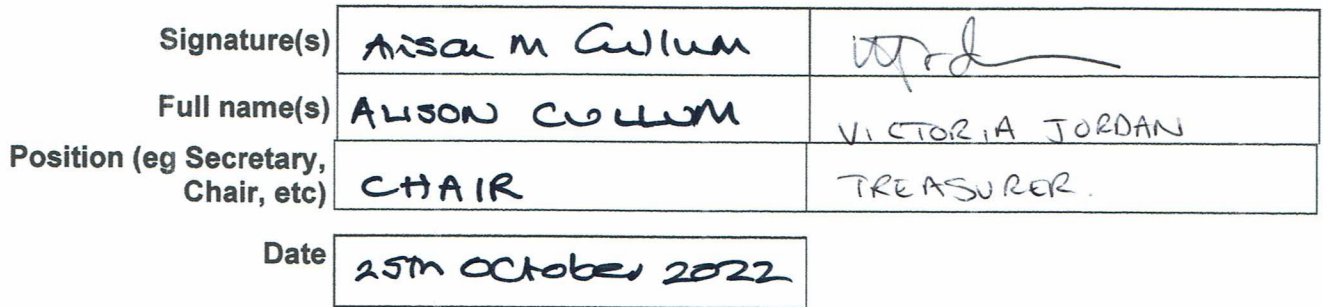 Signature(s) Alison M Cullum
Full name(s) ALISON CULLUM VICTORIA JORDAN
Position (eg Secretary, Chair, etc) CHAIR TREASURER.
Date 25th October 2022